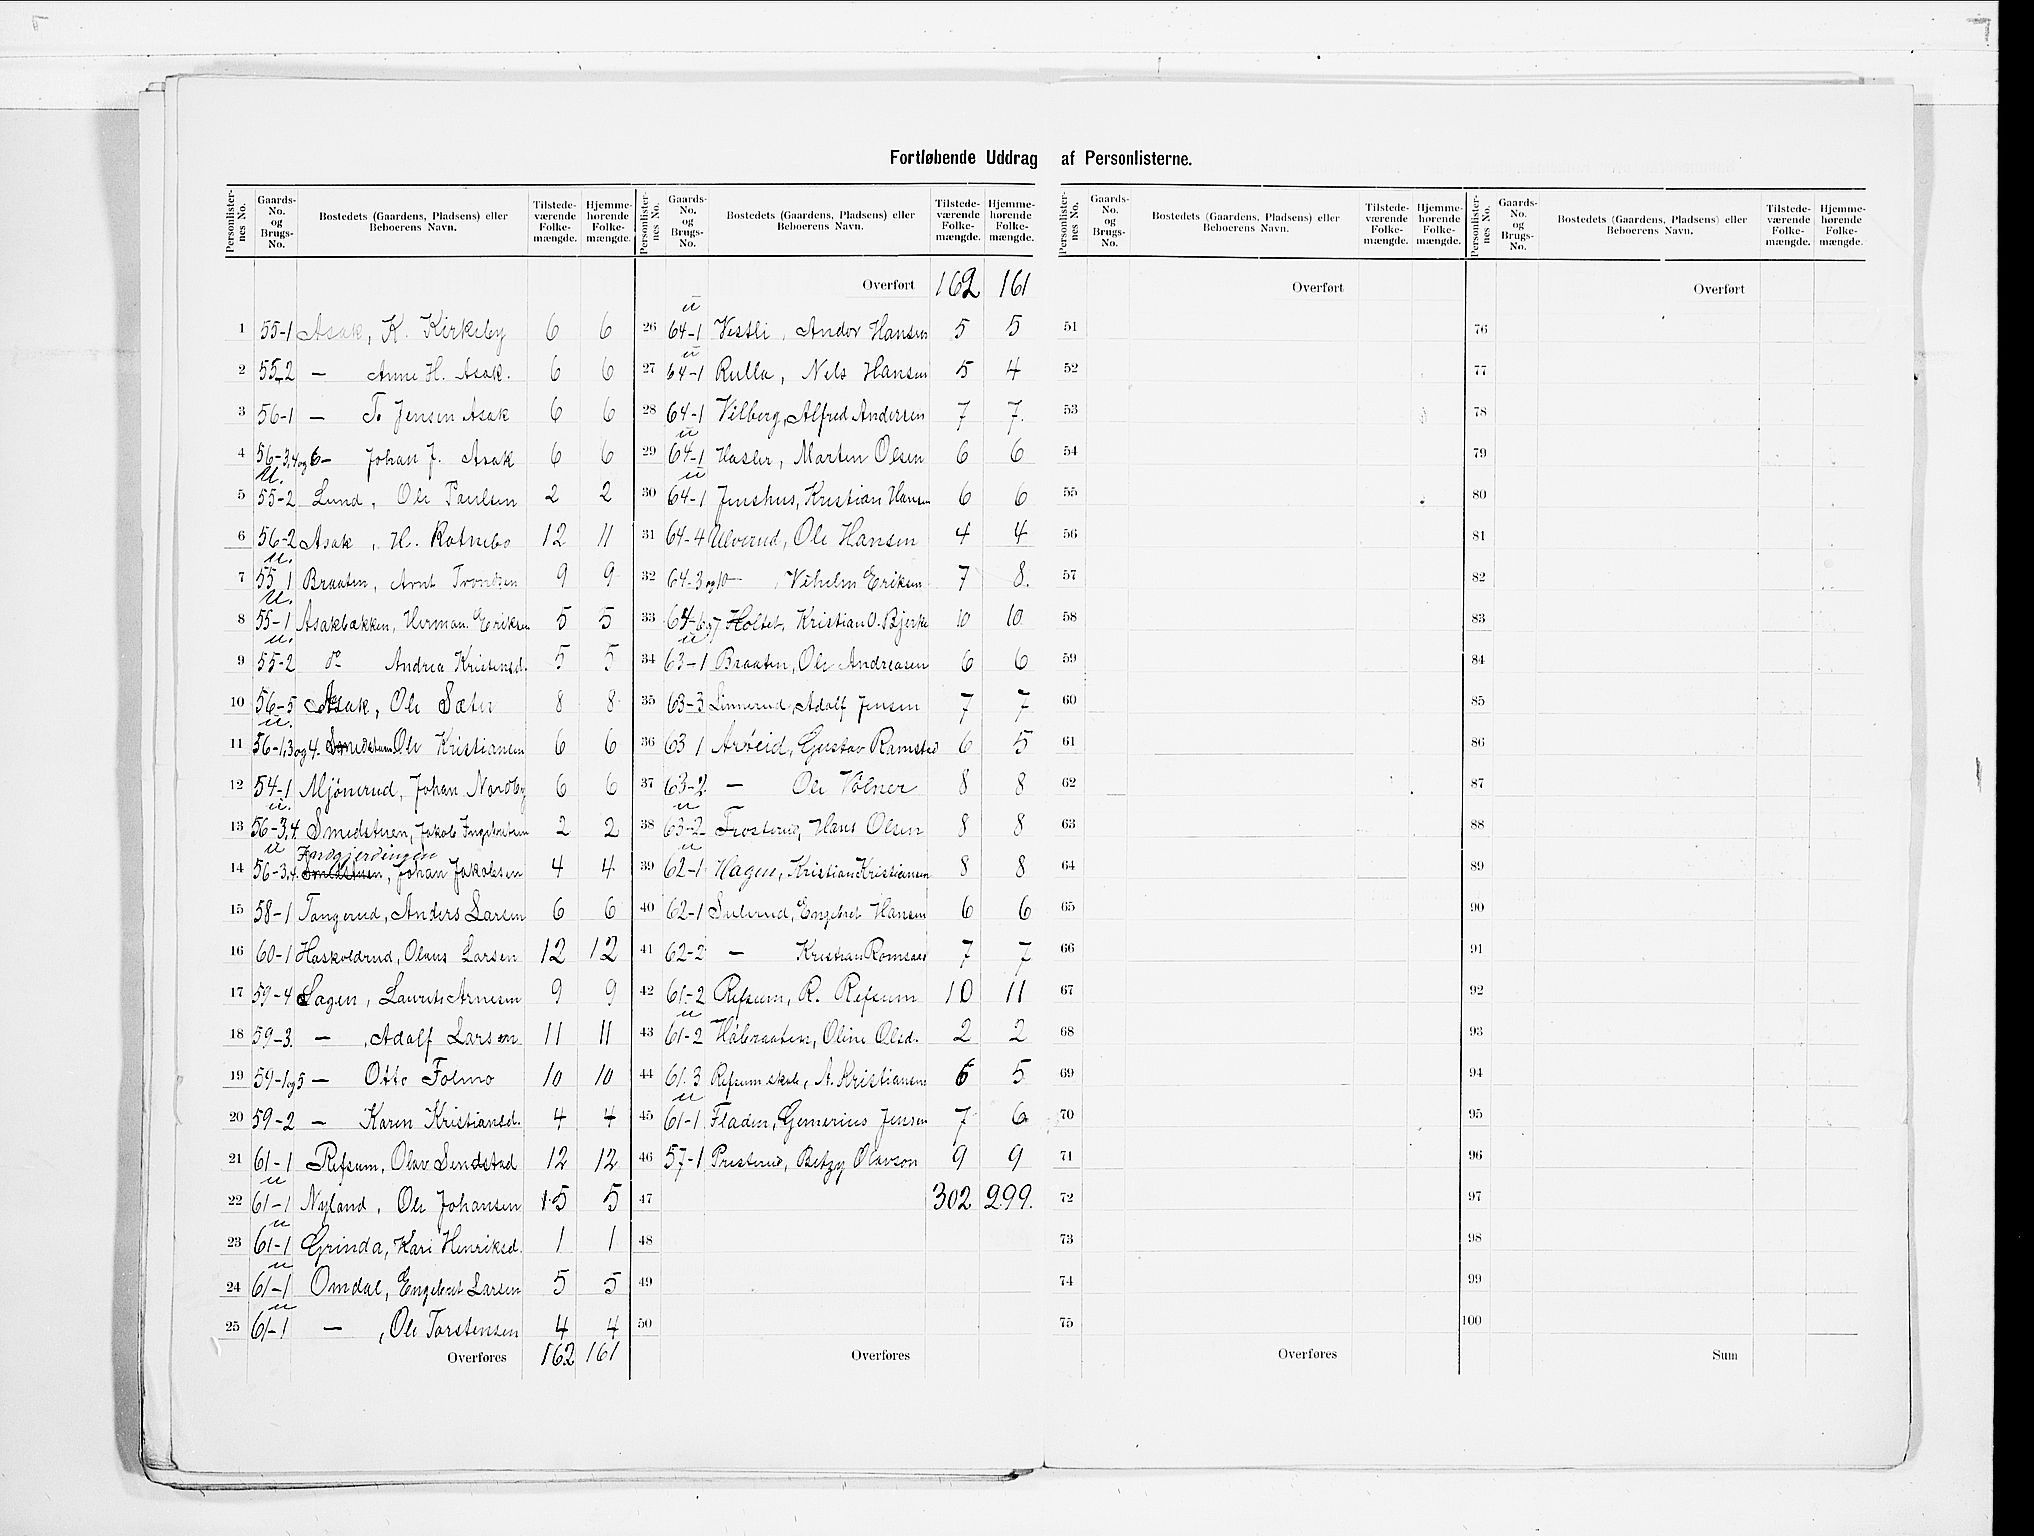 Fortløbende Uddrag af Personlisterne.
Personlister-nes No. Gaards-No. og Brugs-No. Bostedets (Gaardens, Pladsens) eller Beboerens Navn. Tilstede-værende Folke-mængde. Hjemme-hørende Folke-mængde.
1 55-1 Asak, K. Kirkeby 6 6
2 55-2 — Anne H. Asak. 6 6
3 56-1 — T. Jensen Asak 6 6
4 56-3,4 og 6 — Johan J. Asak 6 6
5 U. 55-2 Lund, Ole Paulsen 2 2
6 56-2 Asak, H. Ratnebo 12 11
7 U. 55-1 Braaten, Arnt Trondsen 9 9
8 U. 55-1 Asakbakken, Herman Eriksen 5 5
9 u. 55-2 do Andrea Kristensd. 5 5
10 56-5 Asak, Ole Sæter 8 8
11 u. 56-1,3 og 4. Smedstuen Ole Kristiansen 6 6
12 54-1 Mjönerud, Johan Nordby 6 6
13 u. 56-3,4. Smedstuen, Jakob Ingebretsen 2 2
14 u 56-3,4. Smedstuen, Johan Jakobsen 4 4
15 58-1 Tangerud, Anders Larsen 6 6
16 60-1 Haskoldrud, Olaus Larsen 12 12
17 59-4 Lagen, Laurits Arnesen 9 9
18 59-3. — , Adolf Larsen 11 11
19 59-1 og 5 — Otto Folmo 10 10
20 59-2 — Karen Kristiansd. 4 4
21 61-1 Refsum, Olav Sendstad 12 12
22 u 61-1 Nyland, Ole Johansen 5 5
23 u 61-1 Grinda, Kari Henriksd. 1 1
24 u 61-1 Omdal, Engebret Larsen 5 5
25 u 61-1 — , Ole Torstensen 4 4
Overføres 162 161
Personlister-nes No. Gaards-No. og Brugs-No. Bostedets (Gaardens, Pladsens) eller Beboerens Navn. Tilstede-værende Folke-mængde. Hjemme-hørende Folke-mængde.
Overført 162 161
26 u 64-1 Vestli, Andor Hansen 5 5
27 u 64-1 Rulla, Nels Hansen 5 4
28 64-1 Vilberg, Alfred Andersen 7 7.
29 u 64-1 Hasler, Marten Olsen 6 6
30 u 64-1 Jenshus, Kristian Hansen 6 6
31 64-4 Ulverud, Ole Hansen 4 4
32 64-3 og 10 — , Vilhelm Eriksen 7 8.
33 64-6 og 7 Holtet, Kristian O. Bjerke 10 10
34 u 63-1 Braaten, Ole Andreasen 6 6
35 63-3 Linnerud, Adolf Jensen 7 7
36 63 1 Aröeid, Gustav Ramstad 6 5
37 63-2 — Ole Volner 8 8
38 u 63-2 Frosterud, Hans Olsen 8 8
39 u 62-1 Hagen, Kristian Kristiansen 8 8
40 62-1 Sulerud, Engebret Hansen 6 6
41 62-2 — Kristian Romsaas 7 7
42 61-2 Refsum, R. Refsum 10 11
43 u 61-2 Höbraaten, Oline Olsd. 2 2
44 61.3 Refsum skole, A. Kristiansen 6 5
45 u 61-1 Fladen, Gemerius Jensen 7 6
46 57-1 Presterud, Betzy Olavson 9 9
47 302 299.
48
49
50
Overføres
Personlister-nes No. Gaards-No. og Brugs-No. Bostedets (Gaardens, Pladsens) eller Beboerens Navn. Tilstede-værende Folke-mængde. Hjemme-hørende Folke-mængde.
Overført
51
52
53
54
55
56
57
58
59
60
61
62
63
64
65
66
67
68
69
70
71
72
73
74
75
Overføres
Personlister-nes No. Gaards-No. og Brugs-No. Bostedets (Gaardens, Pladsens) eller Beboerens Navn. Tilstede-værende Folke-mængde. Hjemme-hørende Folke-mængde.
Overført
76
77
78
79
80
81
82
83
84
85
86
87
88
89
90
91
92
93
94
95
96
97
98
99
100
Sum